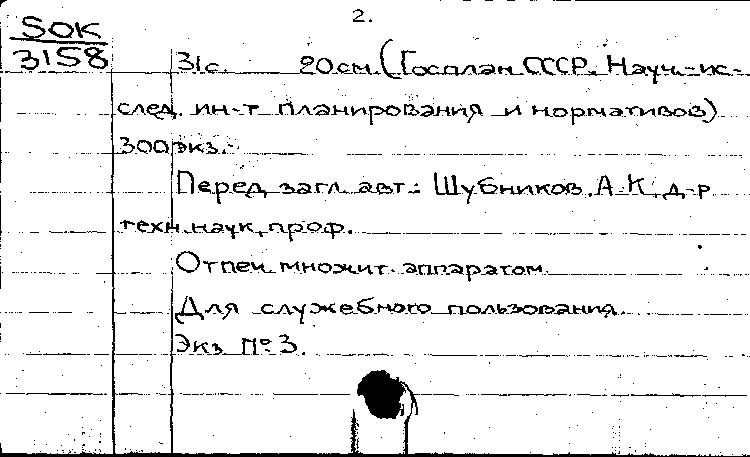 2.
SOK
3158
31с. 20см. (Госплан СССР. Науч.-ис-
след. ин-т планирования и нормативов)
300экз.-
Перед загл. авт.: Шубников, А.К., д-р
техн.наук, проф.
Отпеч. множит. аппаратом.
Для служебного пользования.
Экз. № 3.